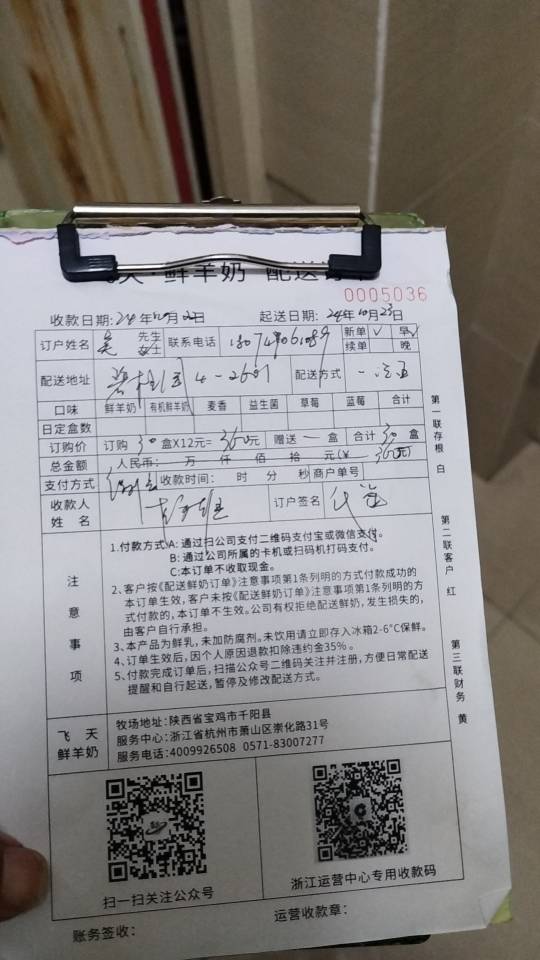 鲜羊奶 配送订单
0005036
收款日期:24年10月22日 起送日期:24年10月23日
订户姓名 吴 先生 女士 联系电话 新单 ✓ 早 ✓
续单 晚
配送地址 碧桂园4-2601 配送方式
口味 鲜羊奶 有机鲜羊奶 麦香 益生菌 草莓 蓝莓 合计
日定盒数
订购价 订购 30 盒X12元= 360元 赠送 一 盒 合计 30 盒
总金额 人民币: 万 仟 佰 拾 元(¥ 360元)
支付方式 微信 收款时间: 时 分 秒 商户单号
收款人姓名 订户签名
注意事项
1.付款方式 A: 通过扫公司支付二维码支付宝或微信支付。
B: 通过公司所属的卡机或扫码机打码支付。
C:本订单不收取现金。
2、客户按《配送鲜奶订单》注意事项第1条列明的方式付款成功的
本订单生效,客户未按《配送鲜奶订单》注意事项第1条列明的方
式付款的,本订单不生效。公司有权拒绝配送鲜奶,发生损失的,
由客户自行承担。
3、本产品为鲜乳,未加防腐剂。未饮用请立即存入冰箱2-6°C保鲜。
4、订单生效后,因个人原因退款扣除违约金35%。
5、付款完成订单后,扫描公众号二维码关注并注册,方便日常配送
提醒和自行起送,暂停及修改配送方式。
飞天鲜羊奶
牧场地址:陕西省宝鸡市千阳县
服务中心:浙江省杭州市萧山区崇化路31号
服务电话:4009926508 0571-83007277
扫一扫关注公众号
浙江运营中心专用收款码
账务签收: 运营收款章:
第一联存根 白
第二联客户 红
第三联财务 黄